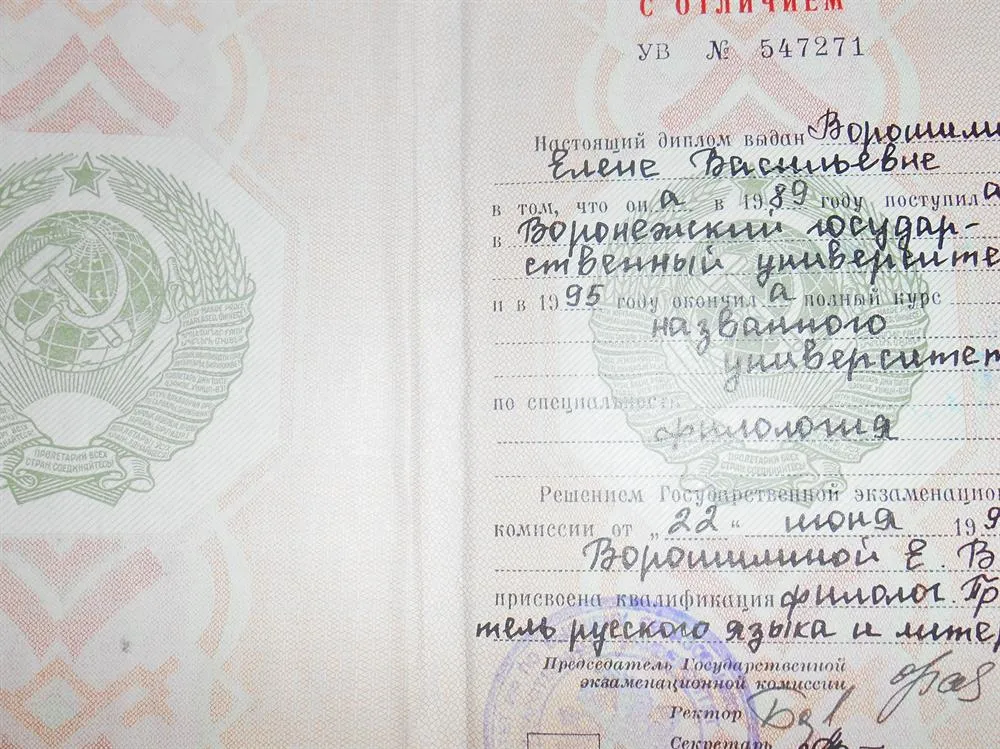 С ОТЛИЧИЕМ
УВ № 547271
Настоящий диплом выдан Ворошили
Елене Васильевне
в том, что он а в 1989 году поступил а
в Воронежский государ-
ственный университе
и в 1995 году окончил а полный курс
названного
университет
по специальности
филология
Решением Государственной экзаменацион
комиссии от „22“ июня 199
Ворошилиной Е. В
присвоена квалификация филолог. Пр
тель русского языка и литер
Председатель Государственной
экзаменационной комиссии
Ректор
Секретарь
ПРОЛЕТАРИИ ВСЕХ
СТРАН СОЕДИНЯЙТЕСЬ!
ПРОЛЕТАРИИ ВСЕХ
СТРАН СОЕДИНЯЙТЕСЬ!